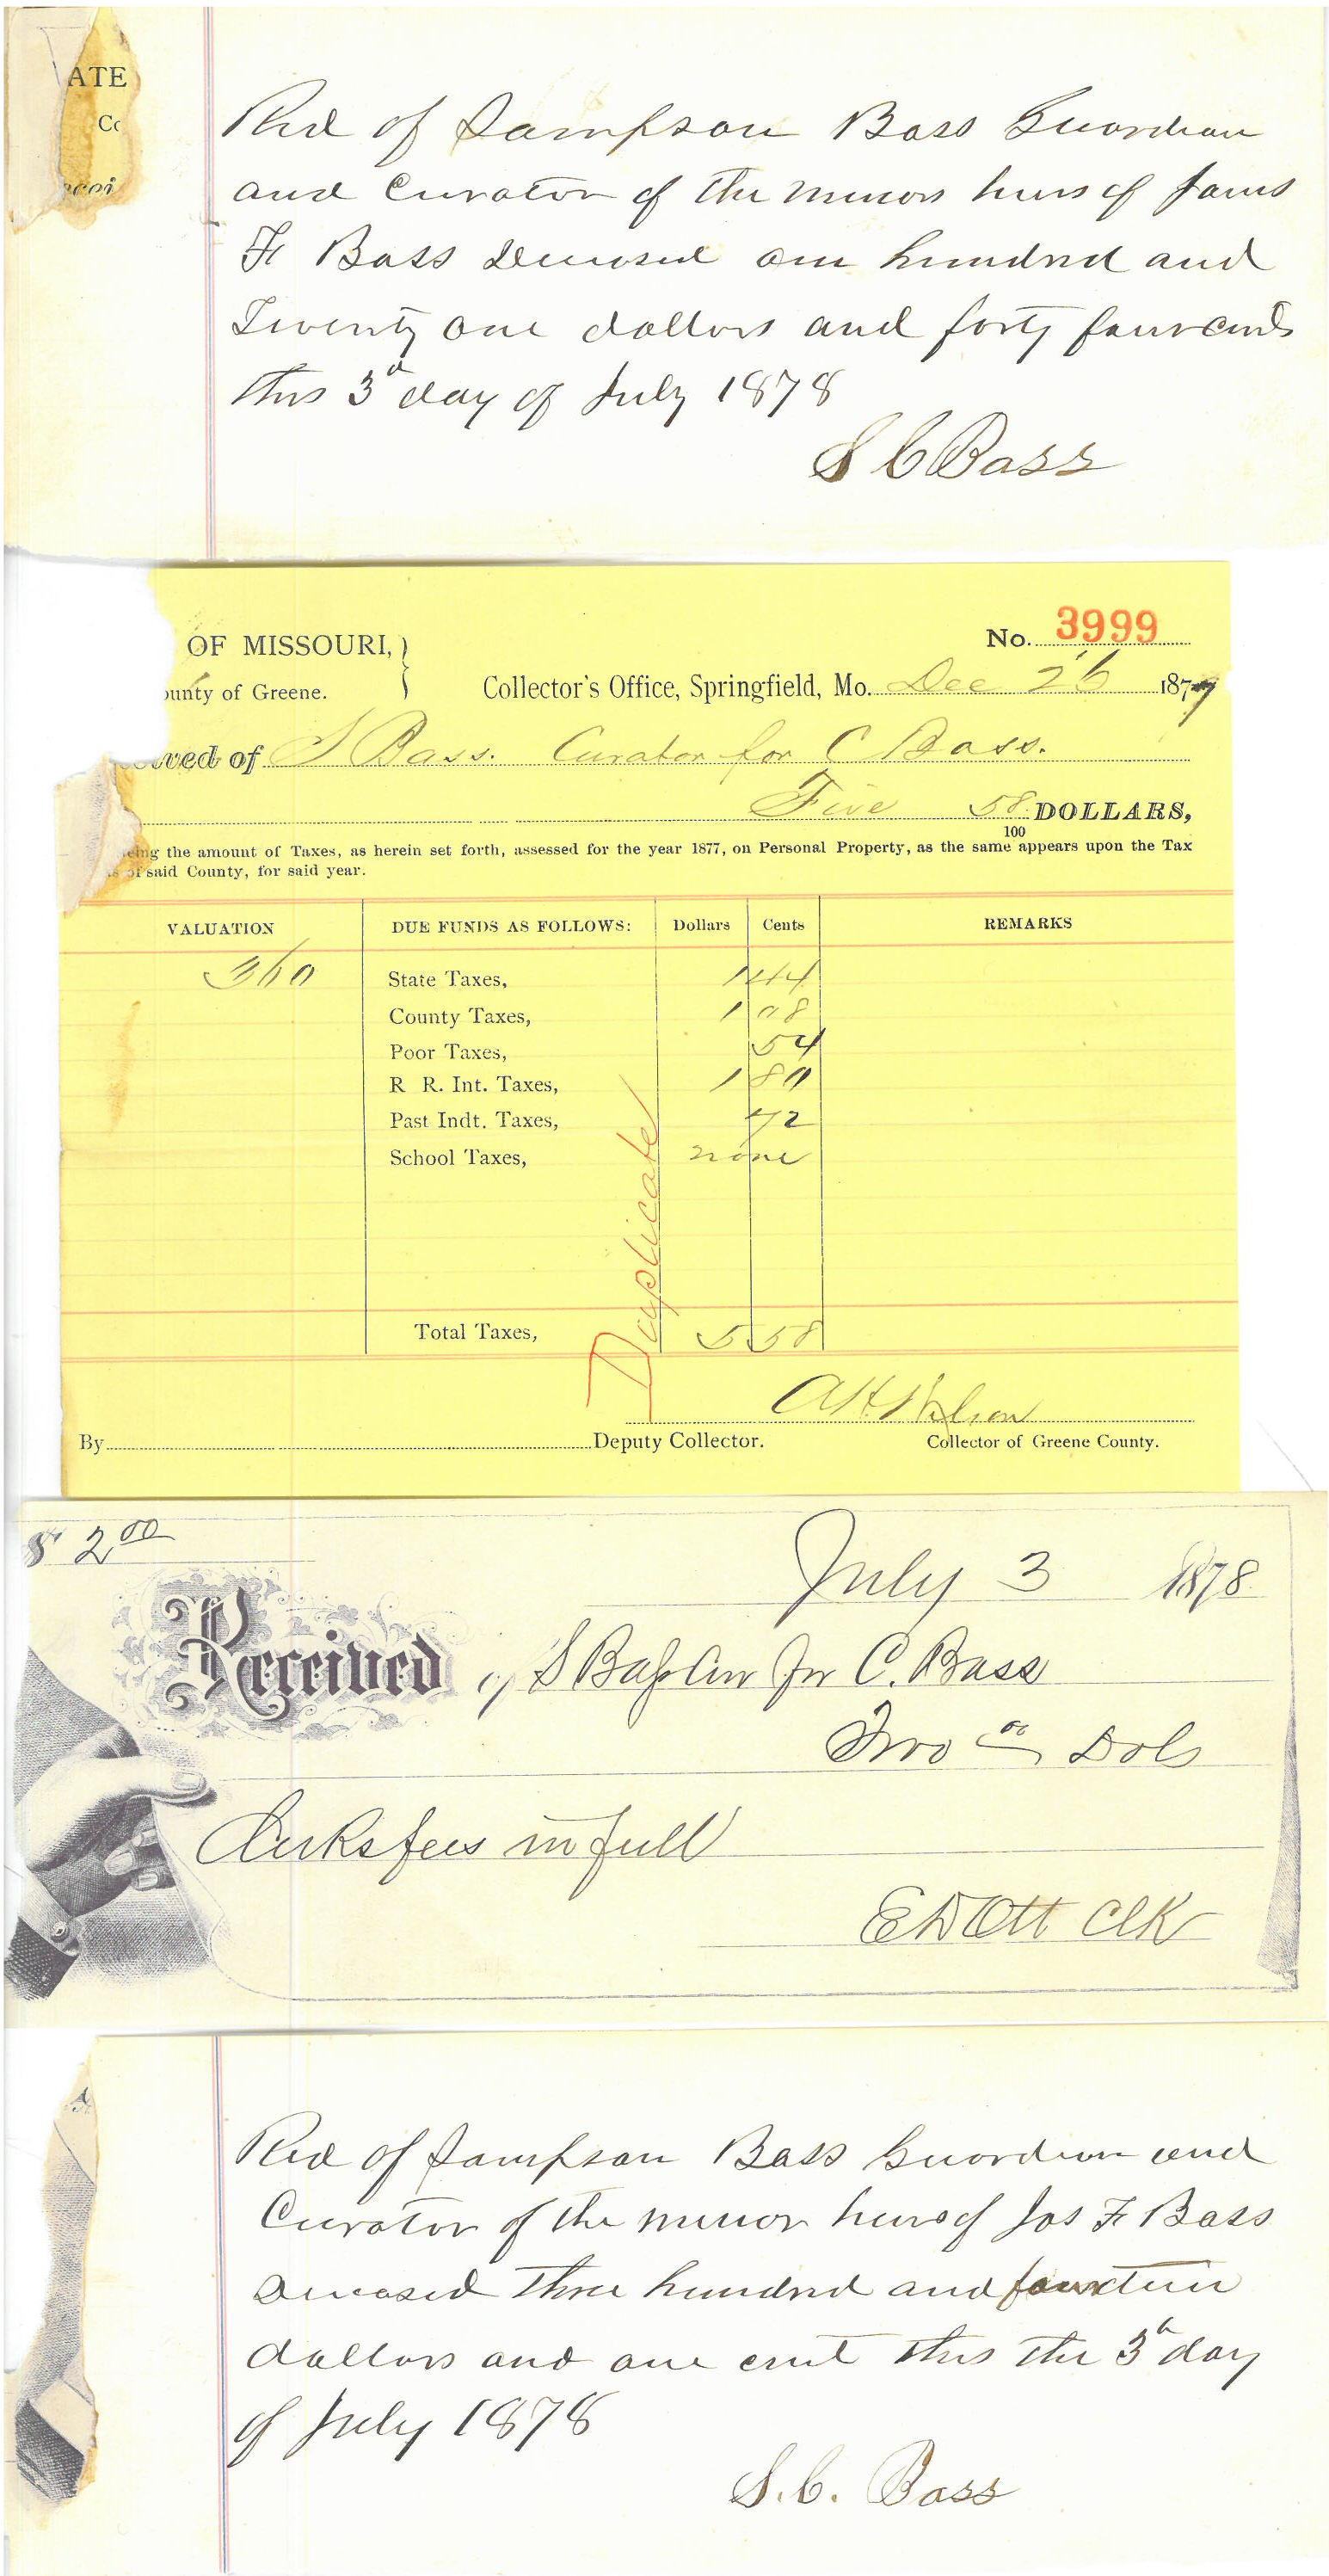 ATE
Co
Recd of Sampson Bass Guardian
and Curator of the minors heirs of James
F Bass Deceased one hundred and
Twenty one dollars and forty four cents
this 3d day of July 1878
S C Bass
OF MISSOURI,
No. 3999
ounty of Greene.
Collector's Office, Springfield, Mo. Dec 26 1877
eived of S Bass. Curator for C Bass.
Five 58/100 DOLLARS,
eing the amount of Taxes, as herein set forth, assessed for the year 1877, on Personal Property, as the same appears upon the Tax
s of said County, for said year.
VALUATION DUE FUNDS AS FOLLOWS: Dollars Cents REMARKS
360 State Taxes, 1 44
County Taxes, 1 08
Poor Taxes, 54
R R. Int. Taxes, 1 80
Past Indt. Taxes, 72
School Taxes, none
Duplicate
Total Taxes, 5 58
A H Wilson
By Deputy Collector. Collector of Greene County.
$ 2 00
July 3 1878
Received of S Bass Cur for C. Bass
Two 00 Dols
Clerks fees in full
E D Ott Clk
Recd of Sampson Bass Guardian and
Curator of the minor heirs of Jas F Bass
Deceased three hundred and fourteen
dollars and one cent this the 3d day
of July 1878
S. C. Bass